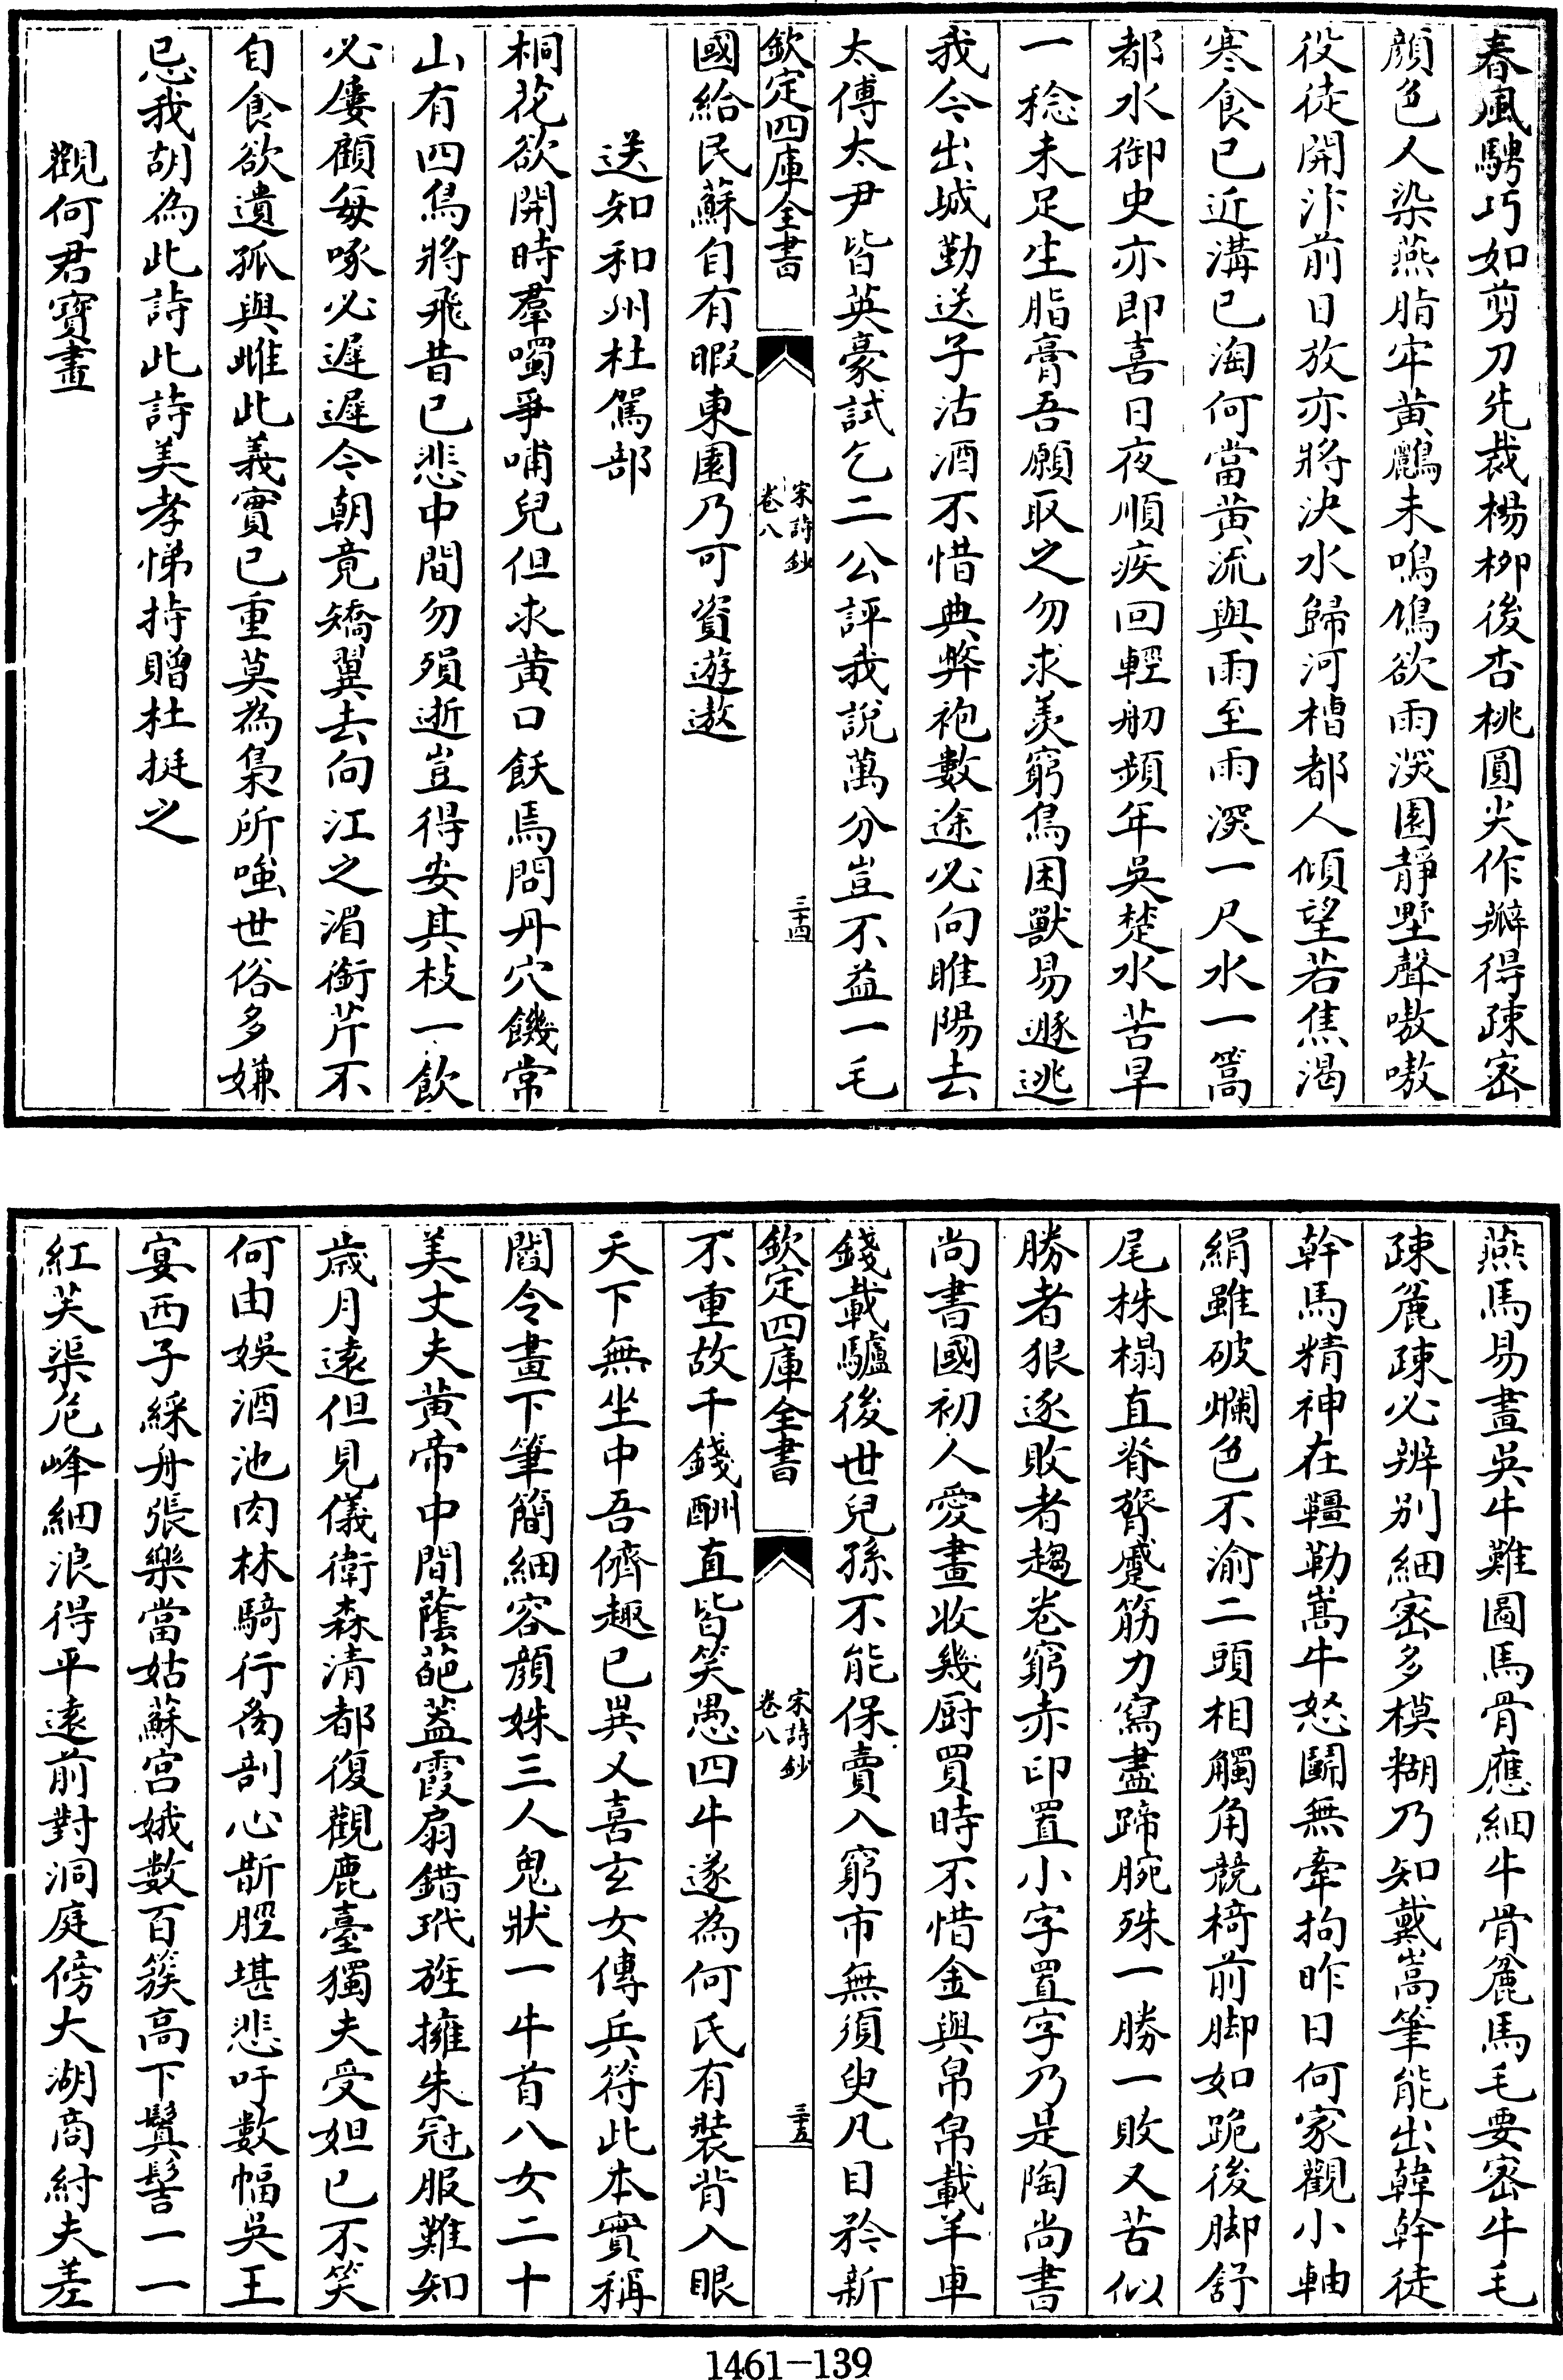 春風騁巧如剪刀先裁楊柳後杏桃圓尖作瓣得疎密
顔色人染燕脂牢黄鸝未鳴鳩欲雨深園靜墅聲嗷嗷
役徒開汴前日放亦將決水歸河槽都人傾望若焦渴
寒食已近溝已淘何當黄流與雨至雨深一尺水一篙
都水御史亦即喜日夜順疾回輕舠頻年吳楚水苦旱
一稔未足生脂膏吾願取之勿求羡窮鳥困獸易遯逃
我今出城勤送子沽酒不惜典弊袍數途必向睢陽去
太傅太尹皆英豪試乞二公評我說萬分豈不益一毛
欽定四庫全書
宋詩鈔
卷八
三十四
國給民蘇自有暇東園乃可資遊遨
送知和州杜駕部
桐花欲開時羣噣爭哺兒但求黄口飫焉問丹穴饑常
山有四鳥將飛昔已悲中間勿殞逝豈得安其枝一飲
必屢顧每啄必遲遲今朝竟矯翼去向江之湄銜芹不
自食欲遺孤與雌此義實已重莫為梟所嗤世俗多嫌
忌我胡為此詩此詩美孝悌持贈杜挺之
觀何君寶畫
燕馬易畫吳牛難圖馬骨應細牛骨麄馬毛要密牛毛
疎麄疎必辨别細密多模糊乃知戴嵩筆能出韓幹徒
幹馬精神在韁勒嵩牛怒鬬無牽拘昨日何家觀小軸
絹雖破爛色不渝二頭相觸角競椅前脚如跪後脚舒
尾株榻直脊膂蹙筋力寫盡蹄腕殊一勝一敗又苦似
勝者狠逐敗者趨卷窮赤印置小字置字乃是陶尚書
尚書國初人愛畫收幾厨買時不惜金與帛帛載羊車
錢載驢後世兒孫不能保賣入窮市無須臾凡目矜新
欽定四庫全書
宋詩鈔
卷八
三十五
不重故千錢酬直皆笑愚四牛遂為何氏有裝背入眼
天下無坐中吾儕趣已異又喜玄女傳兵符此本實稱
閻令畫下筆簡細容顔姝三人鬼狀一牛首八女二十
美丈夫黄帝中間蔭葩蓋霞扇錯玳旌擁朱冠服難知
歲月遠但見儀衛森清都復觀鹿臺獨夫受妲已不笑
何由娛酒池肉林騎行㢮剖心斮脛堪悲吁數幅吳王
宴西子綵舟張樂當姑蘇宫娥數百簇高下鬒髻一一
紅芙渠危峰細浪得平遠前對洞庭傍大湖商紂夫差
1461-139